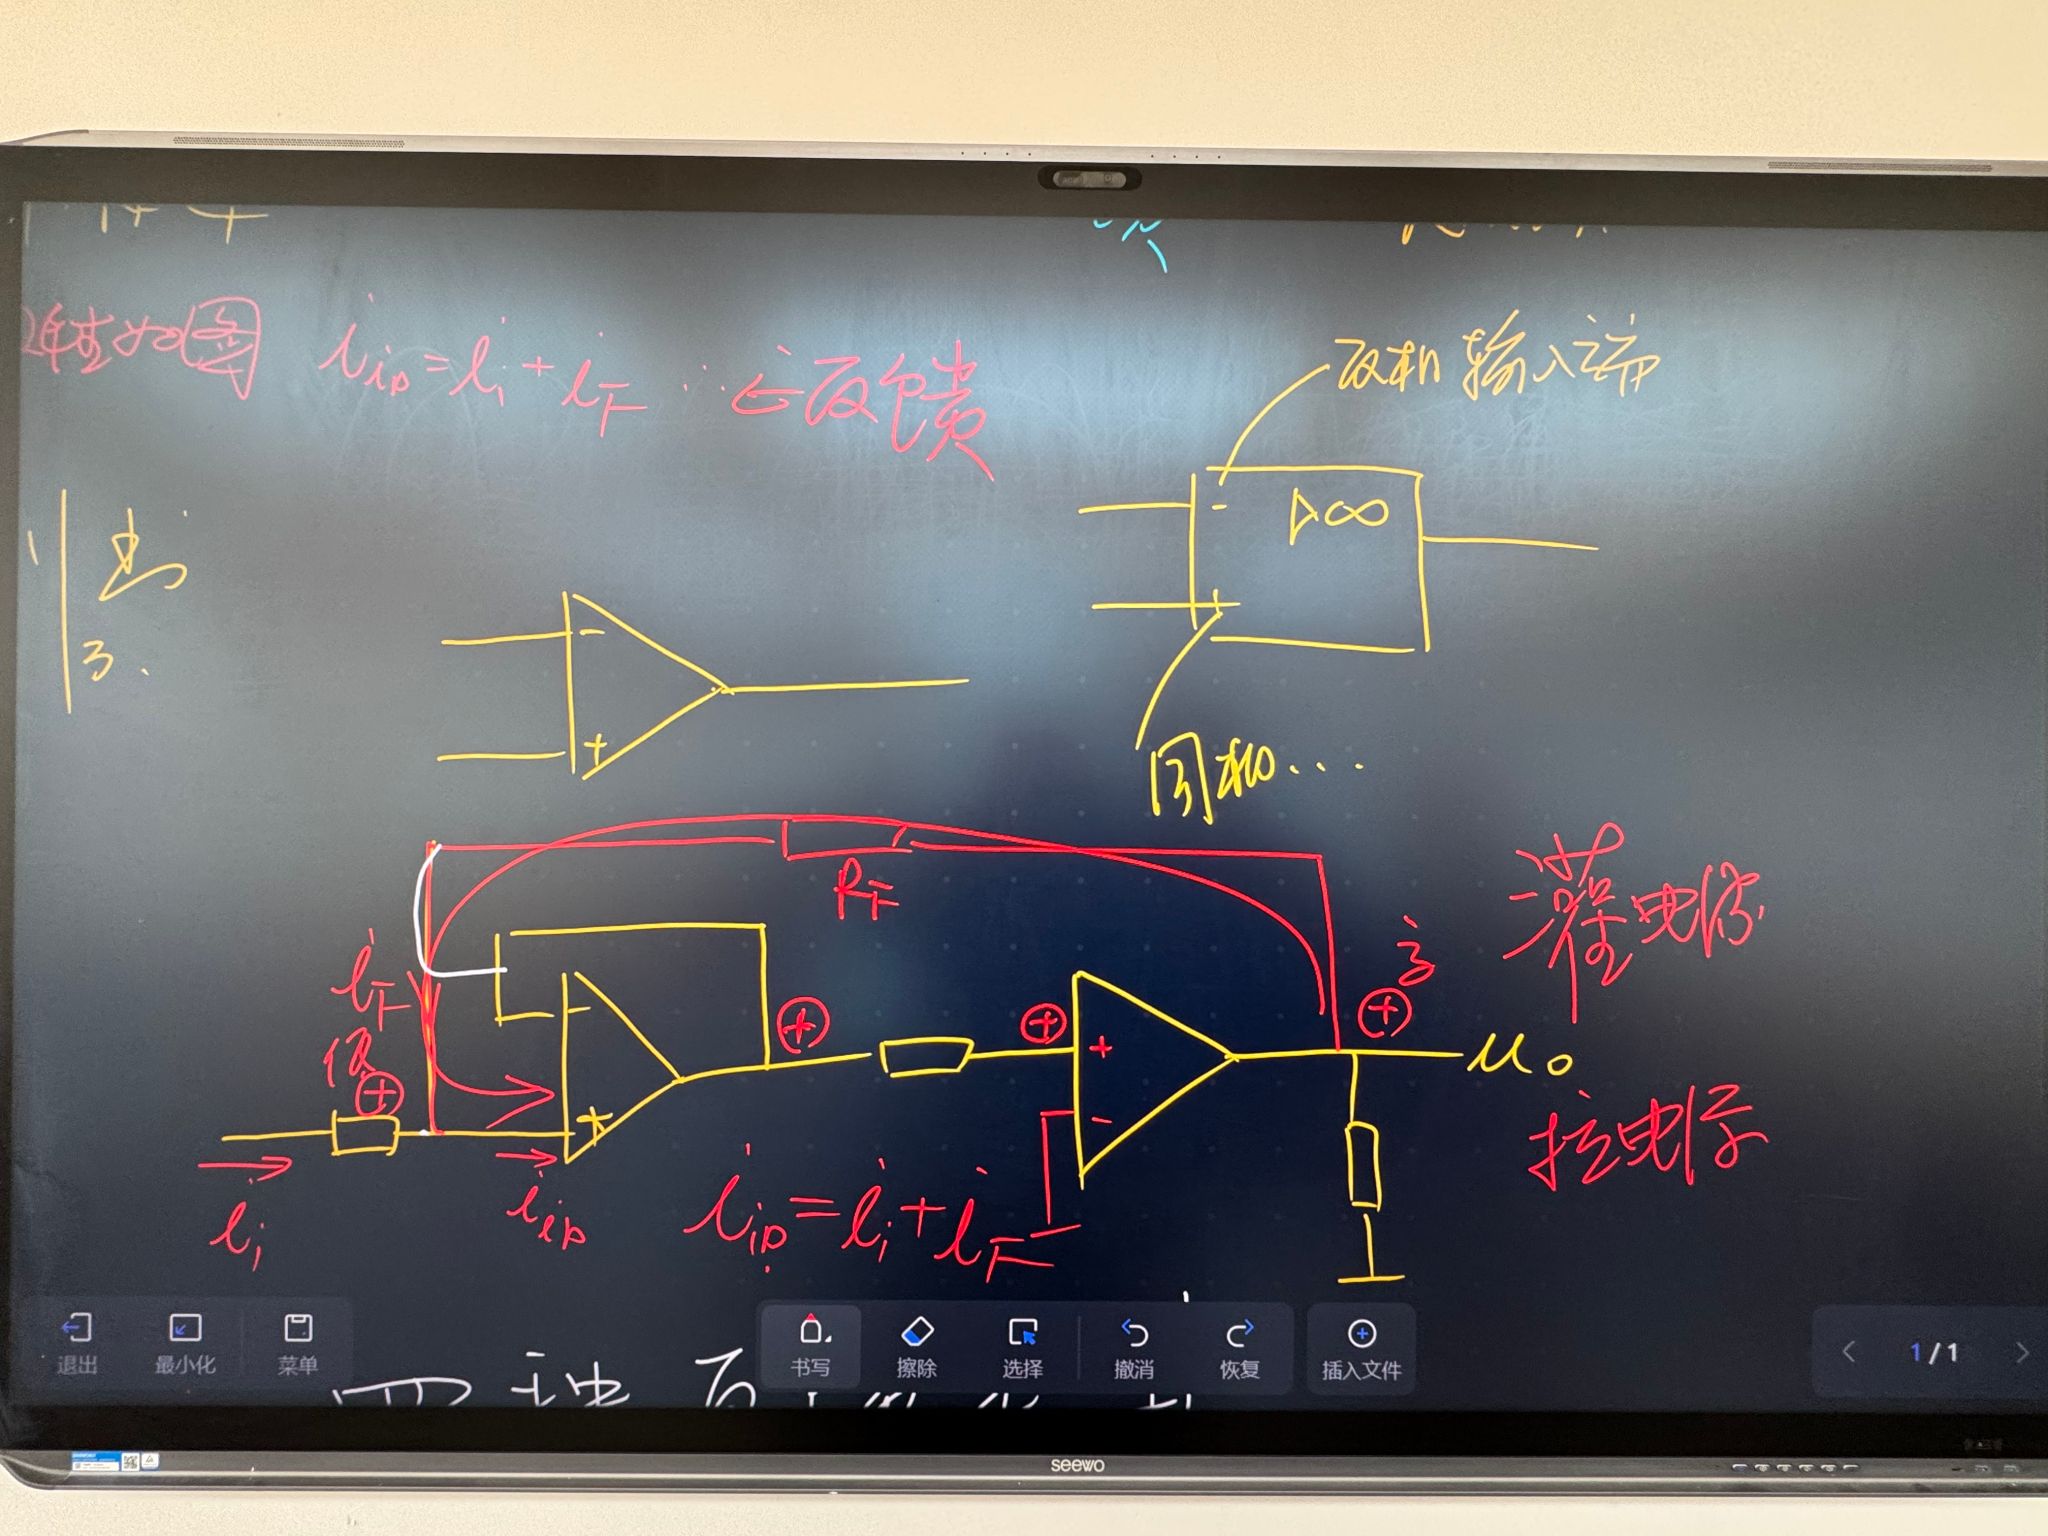 极性如图 i_iD = i_i + i_F ∴正反馈
反相输入端
- ▷∞
+
-
+
同相...
R_F
灌电流
i_F
高
⊕
低
⊕
⊕
⊕
+
-
+
u_o
拉电流
i_i
i_iD
i_iD = i_i + i_F
退出
最小化
菜单
书写
擦除
选择
撤消
恢复
插入文件
1/1
四种反
seewo